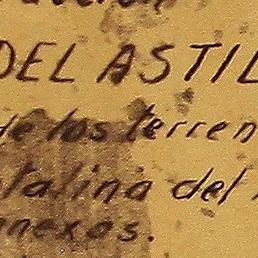 DEL ASTIL
de los terren
talina del
nexas.